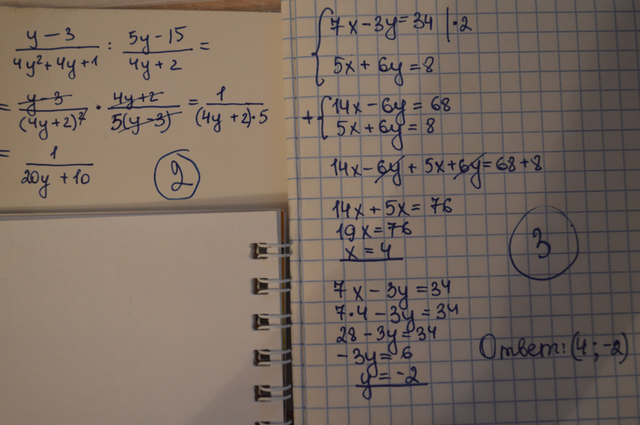 y-3/4y²+4y+1 : 5y-15/4y+2 =
= y-3/(4y+2)² · 4y+2/5(y-3) = 1/(4y+2)·5
= 1/20y+10
2
7x-3y=34 |·2
5x+6y=8
+ 14x-6y=68
5x+6y=8
14x-6y+5x+6y=68+8
14x+5x=76
19x=76
x=4
3
7x-3y=34
7·4-3y=34
28-3y=34
-3y=6
y=-2
Ответ: (4; -2)